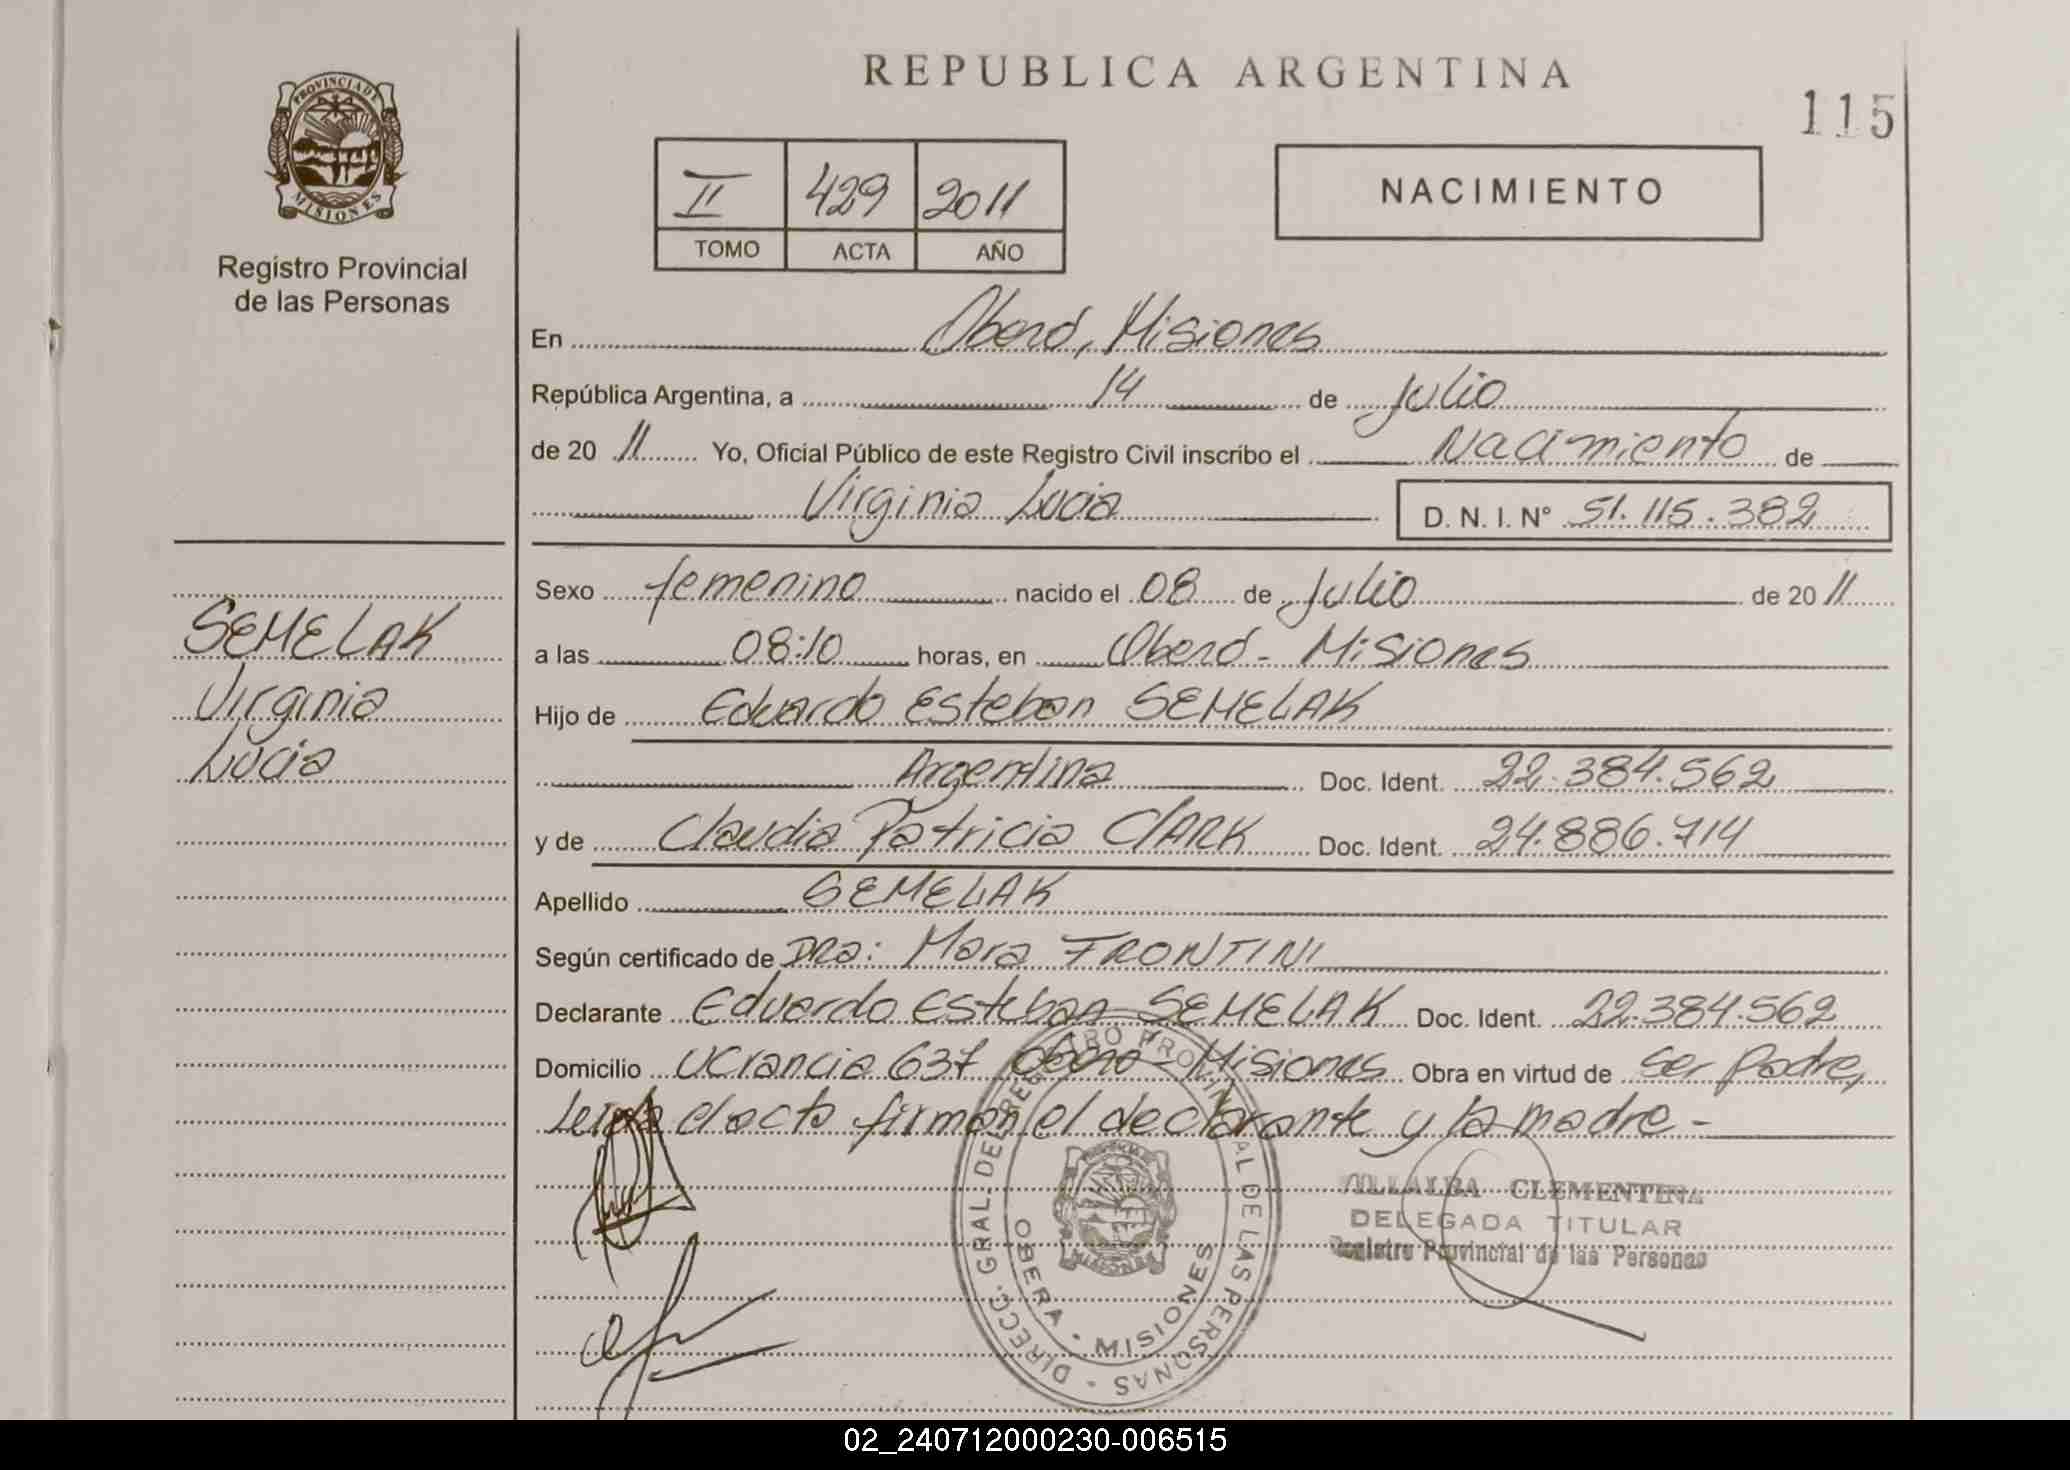 REPUBLICA ARGENTINA
115
PROVINCIA DE
MISIONES
Registro Provincial
de las Personas
II 429 2011
TOMO ACTA AÑO
NACIMIENTO
En Oberá, Misiones
República Argentina, a 14 de Julio
de 2011 Yo, Oficial Público de este Registro Civil inscribo el Nacimiento de
Virginia Lucia D. N. I. N° 51.115.382
SEMELAK
Virginia
Lucia
Sexo femenino nacido el 08 de Julio de 2011
a las 08:10 horas, en Oberá - Misiones
Hijo de Eduardo Esteban SEMELAK
Argentina Doc. Ident. 22.384.562
y de Claudia Patricia CLARK Doc. Ident. 24.886.714
Apellido SEMELAK
Según certificado de DRa: Mara FRONTINI
Declarante Eduardo Esteban SEMELAK Doc. Ident. 22.384.562
Domicilio Ucrancia 637 Oberá - Misiones Obra en virtud de ser padre,
Leida el acta firman el declarante y la madre -
DIRECC. GRAL. DEL REGISTRO PROVINCIAL DE LAS PERSONAS -
OBERA - MISIONES
MISIONES
VILLALBA CLEMENTINA
DELEGADA TITULAR
Registro Provincial de las Personas
02_240712000230-006515